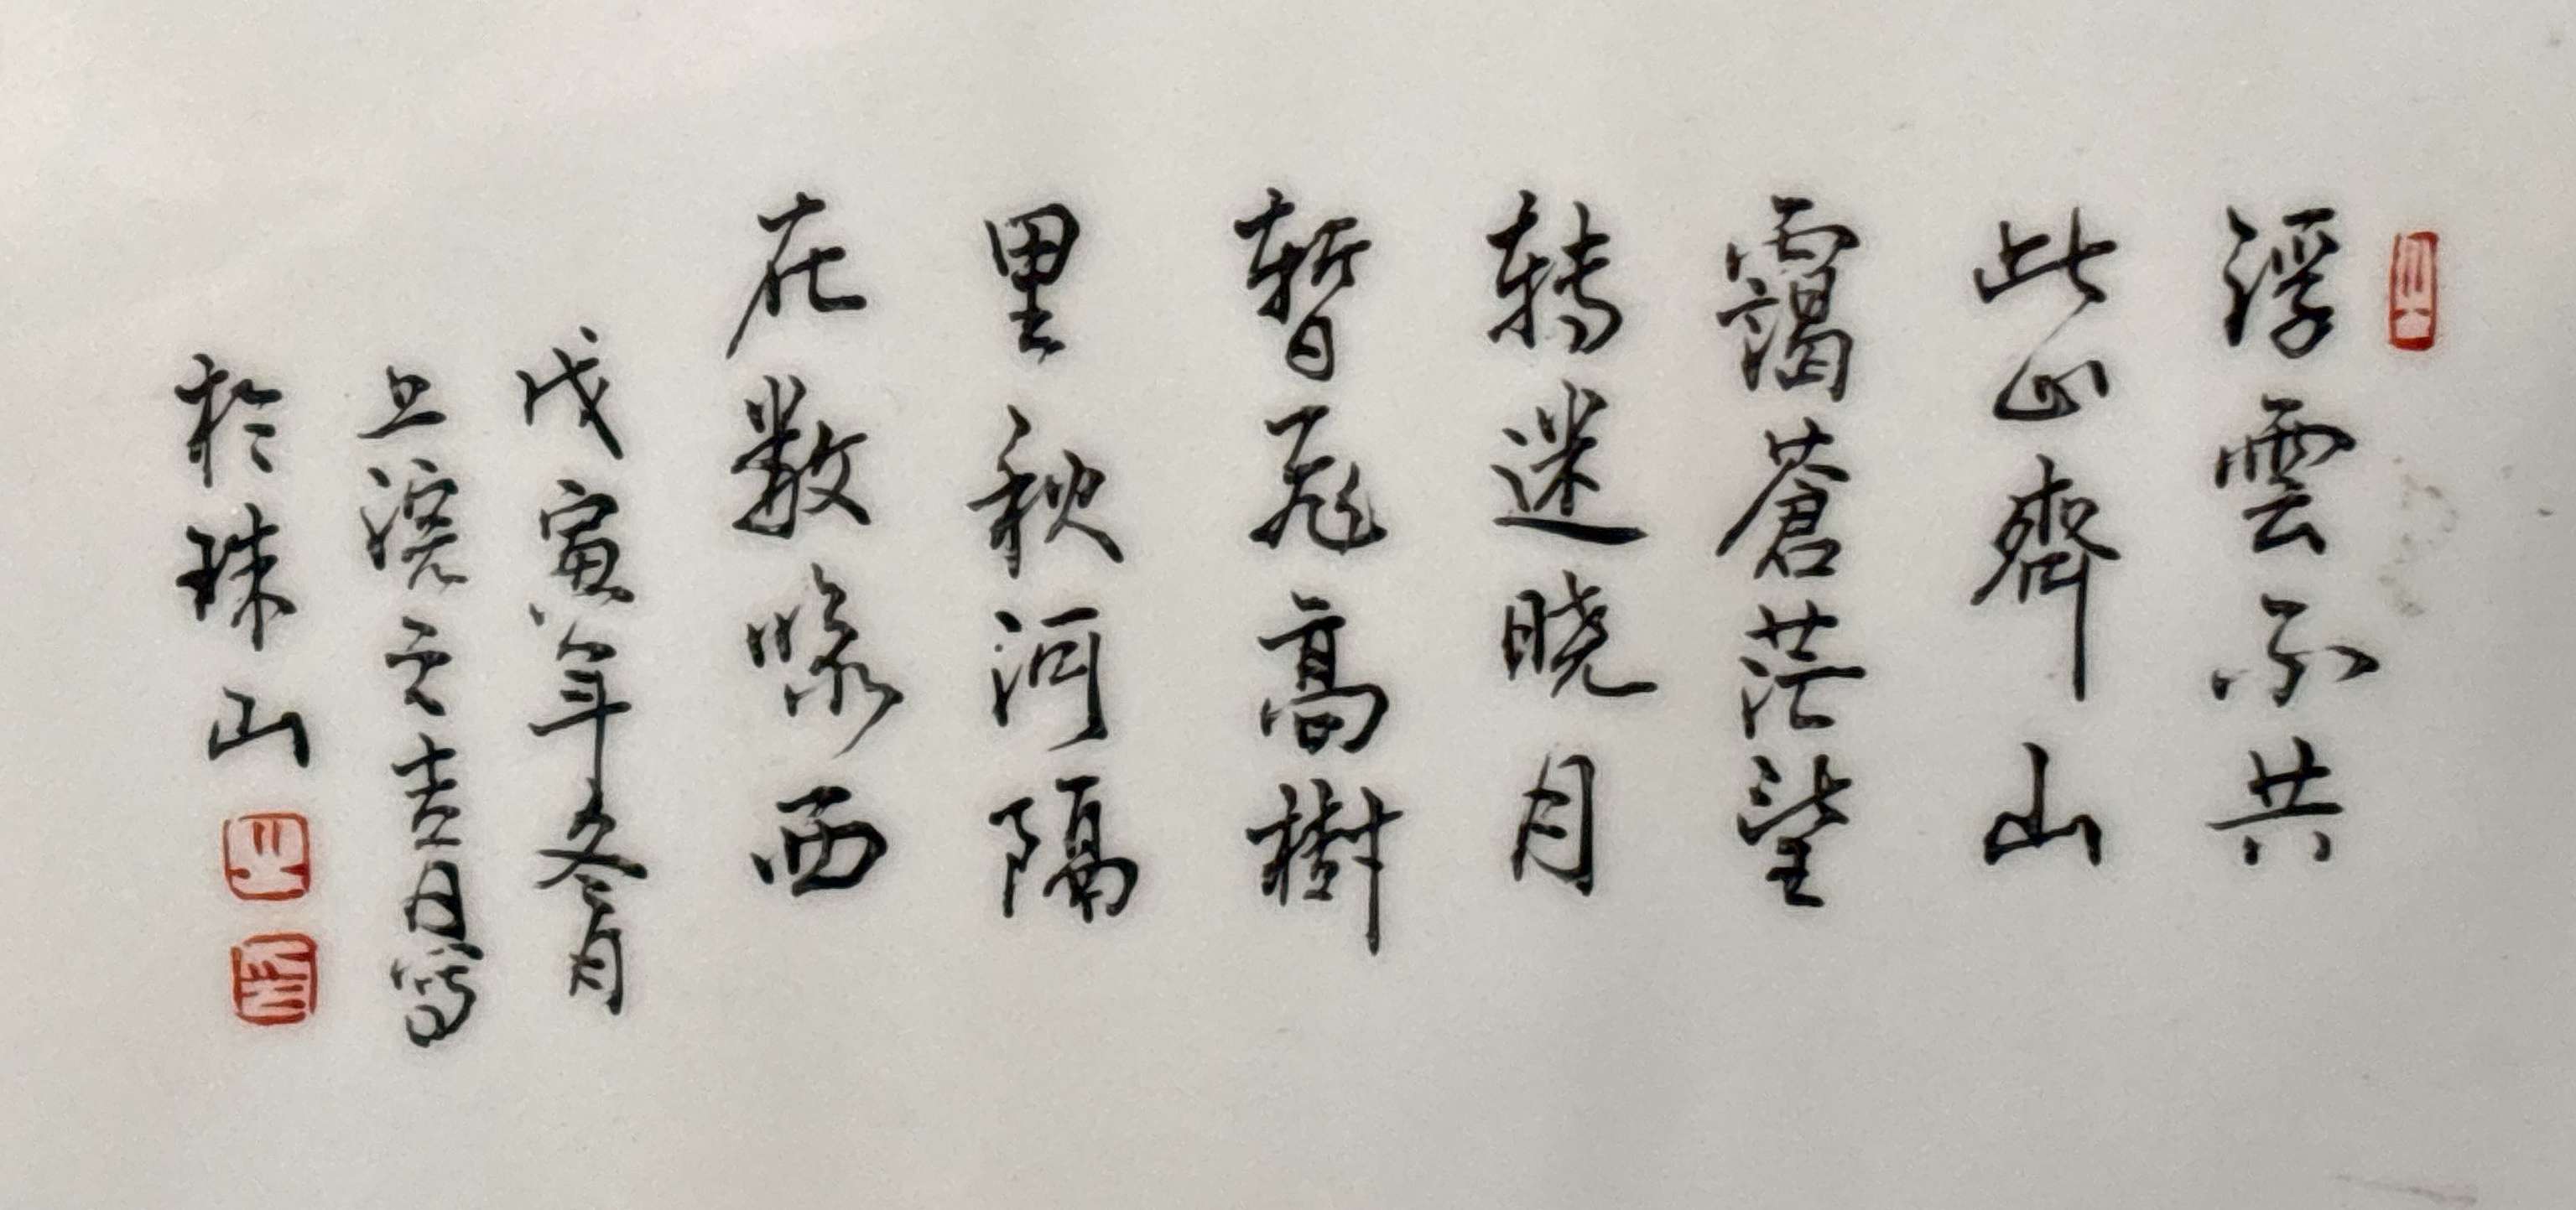 浮雲不共
此山齊山
靄蒼茫望
转迷晓月
暫飛高樹
里秋河隔
在數峰西
戊寅年冬月
上浣之吉日寫
於珠山